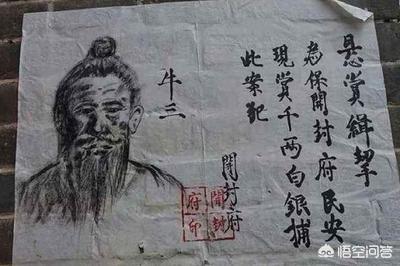 悬賞緝拏
為保開封府民安
現賞千两白銀捕
此案犯
開封府
開封
府印
牛三
悟空问答